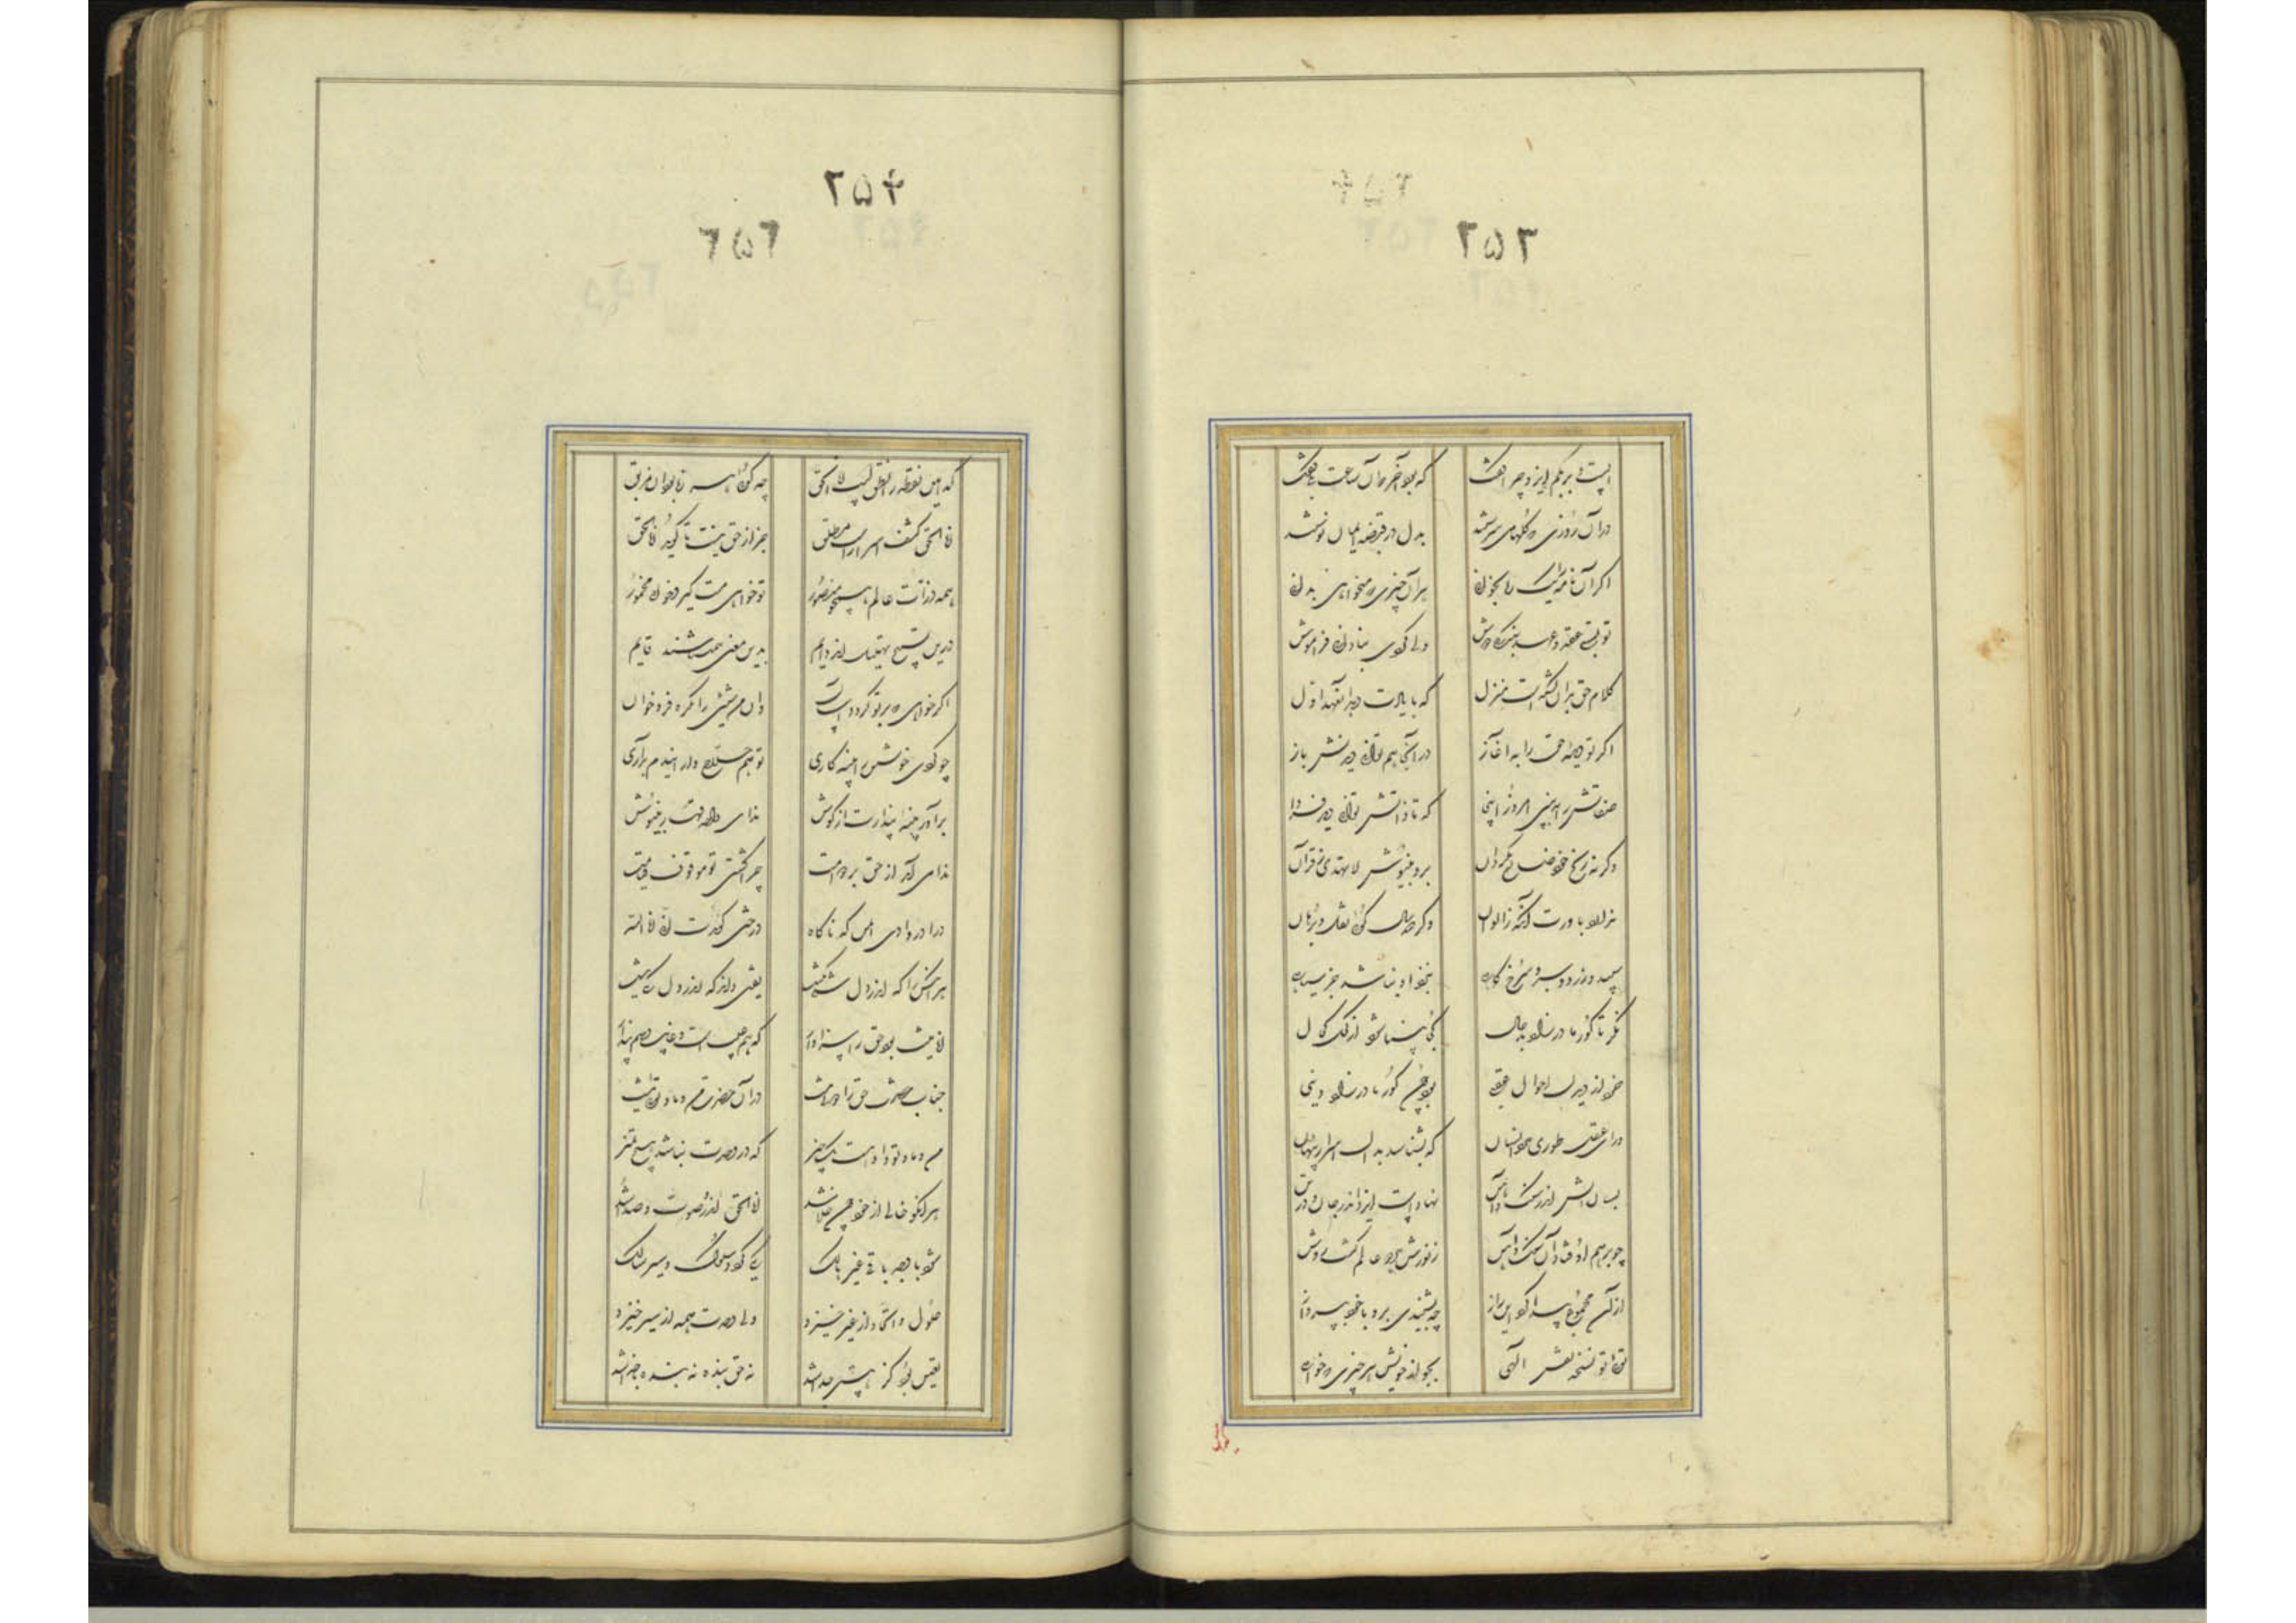 ۲۵۳
الست بربکم ایزد چرا گفت که بود آخر که آن ساعت بلی گفت
در آن روزی که گلها می سرشتند بدل در قصه ایمان نوشتند
اگر آن نامه را یک ره بخوانی هر آن چیزی که میخواهی بدانی
تو بستی عقد عهد بندگی دوش ولی کردی بنادانی فراموش
کلام حق بدان گشته است منزل که با یادت دهد آن عهد اول
اگر تو دیده حق را به آغاز در اینجا هم توانی دیدنش باز
صفاتش را ببین امروز اینجا که تا ذاتش توانی دید فردا
وگرنه رنج خود ضایع مگردان برو بنیوش لا تهدی ز قرآن
ندارد باورت اکمه ز الوان وگر صد سال گوئی نقل و برهان
سپید و زرد و سبز و سرخ و کاهی بنزد او نباشد جز سیاهی
نگر تا کور مادرزاد بدحال کجا بینا شود از کحل کحال
خرد از دیدن احوال عقبی بود چون کور مادرزاد دنیی
ورای عقل طوری دارد انسان که بشناسد بدان اسرار پنهان
بسان آتش اندر سنگ و آهن نهاده است ایزد اندر جان و در تن
چو بر هم اوفتاد آن سنگ و آهن ز نورش هر دو عالم گشت روشن
از آن مجموع پیدا گردد این راز چو بشنیدی برو با خود بپرداز
توئی تو نسخه نقش الهی بجو از خویش هر چیزی که خواهی
۲۵۴
۲۵۶
کدامین نقطه را نطق است انا الحق چه گوئی هرزه بود آن مزبق
انا الحق کشف اسرار است مطلق بجز از حق کیست تا گوید انا الحق
همه ذرات عالم همچو منصور تو خواهی مست گیر و خواه مخمور
درین تسبیح و تهلیلند دایم بدین معنی همی باشند قایم
اگر خواهی که بر تو گردد آسان وان من شیئی را یکره فرو خوان
چو کردی خویشتن را پنبه کاری تو هم حلاج وار این دم برآری
برآور پنبه پندارت از گوش ندای واحد القهار بنیوش
ندا می آید از حق بر دوامت چرا گشتی تو موقوف قیامت
درآ در وادی ایمن که ناگاه درختی گویدت انی انا الله
هر آنکس را که اندر دل شکی نیست یقین داند که اندر دل یکی نیست
انانیت بود حق را سزاوار که هو غیب است و غایب وهم و پندار
جناب حضرت حق را دوئی نیست در آن حضرت من و ما و توئی نیست
من و ما و تو و او هست یک چیز که در وحدت نباشد هیچ تمییز
هر آنکو خالی از خود چون خلا شد انا الحق اندرو صوت و صدا شد
شود با وجه باقی غیر هالک یکی گردد سلوک و سیر سالک
حلول و اتحاد از غیر خیزد ولی وحدت همه از سیر خیزد
تعین بود کز هستی جدا شد نه حق بنده نه بنده با خدا شد